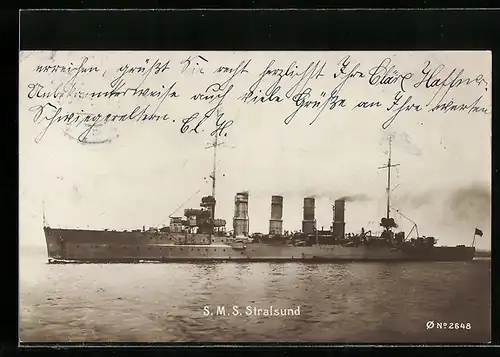 erreichen, grüßt Sie recht herzlichst Ihre Cläre Haffner.
Unbekannterweise auch viele Grüße an Ihre werten
Schwiegereltern. Cl. H.
S.M.S. Stralsund
Ø No 2648